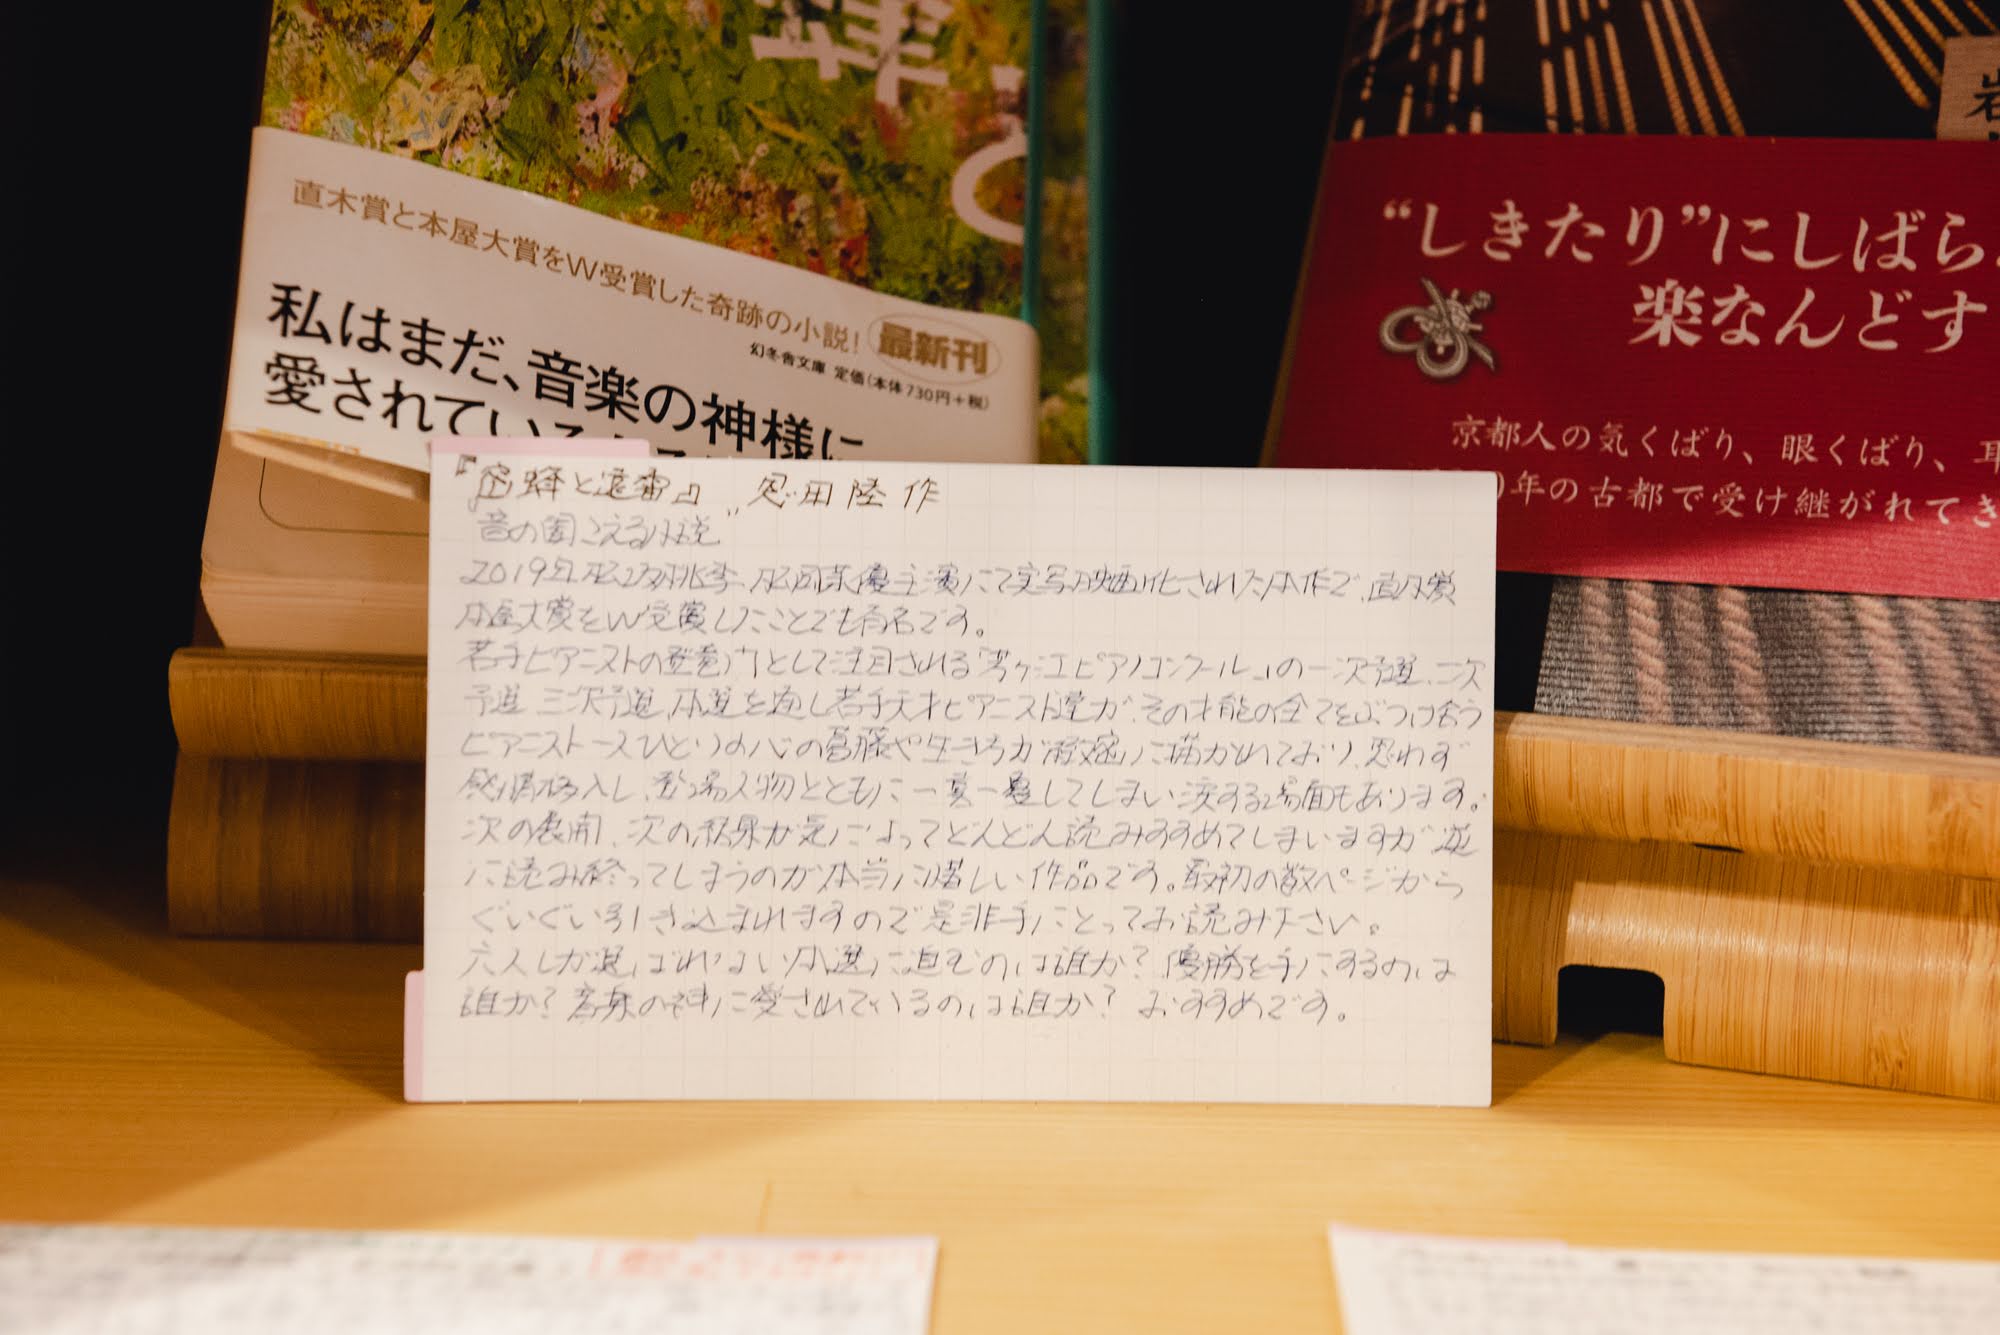 直木賞と本屋大賞をW受賞した奇跡の小説!
最新刊
幻冬舎文庫 定価(本体730円+税)
私はまだ、音楽の神様に
愛されている
“しきたり”にしばら
楽なんどす
京都人の気くばり、眼くばり、耳
年の古都で受け継がれてき
『蜜蜂と遠雷』 恩田陸 作
音の聞こえる小説
2019年松坂桃李、松岡茉優主演にて実写映画化された本作で、直木賞
本屋大賞をW受賞したことでも有名です。
若手ピアニストの登竜門として注目される「芳ヶ江ピアノコンクール」の一次予選、二次
予選、三次予選、本選を通し若手天才ピアニスト達が、その才能の全てをぶつけ合う
ピアニスト一人ひとりの心の葛藤や生き方が緻密に描かれており、思わず
感情移入し、登場人物とともに一喜一憂してしまい涙する場面もあります。
次の展開、次の結果が気になってどんどん読みすすめてしまいますが逆
に読み終ってしまうのが本当に惜しい作品です。最初の数ページから
ぐいぐい引き込まれますので是非手にとってお読み下さい。
六人しか選ばれない本選に進むのは誰か?優勝を手にするのは
誰か?音楽の神に愛されているのは誰か? おすすめです。